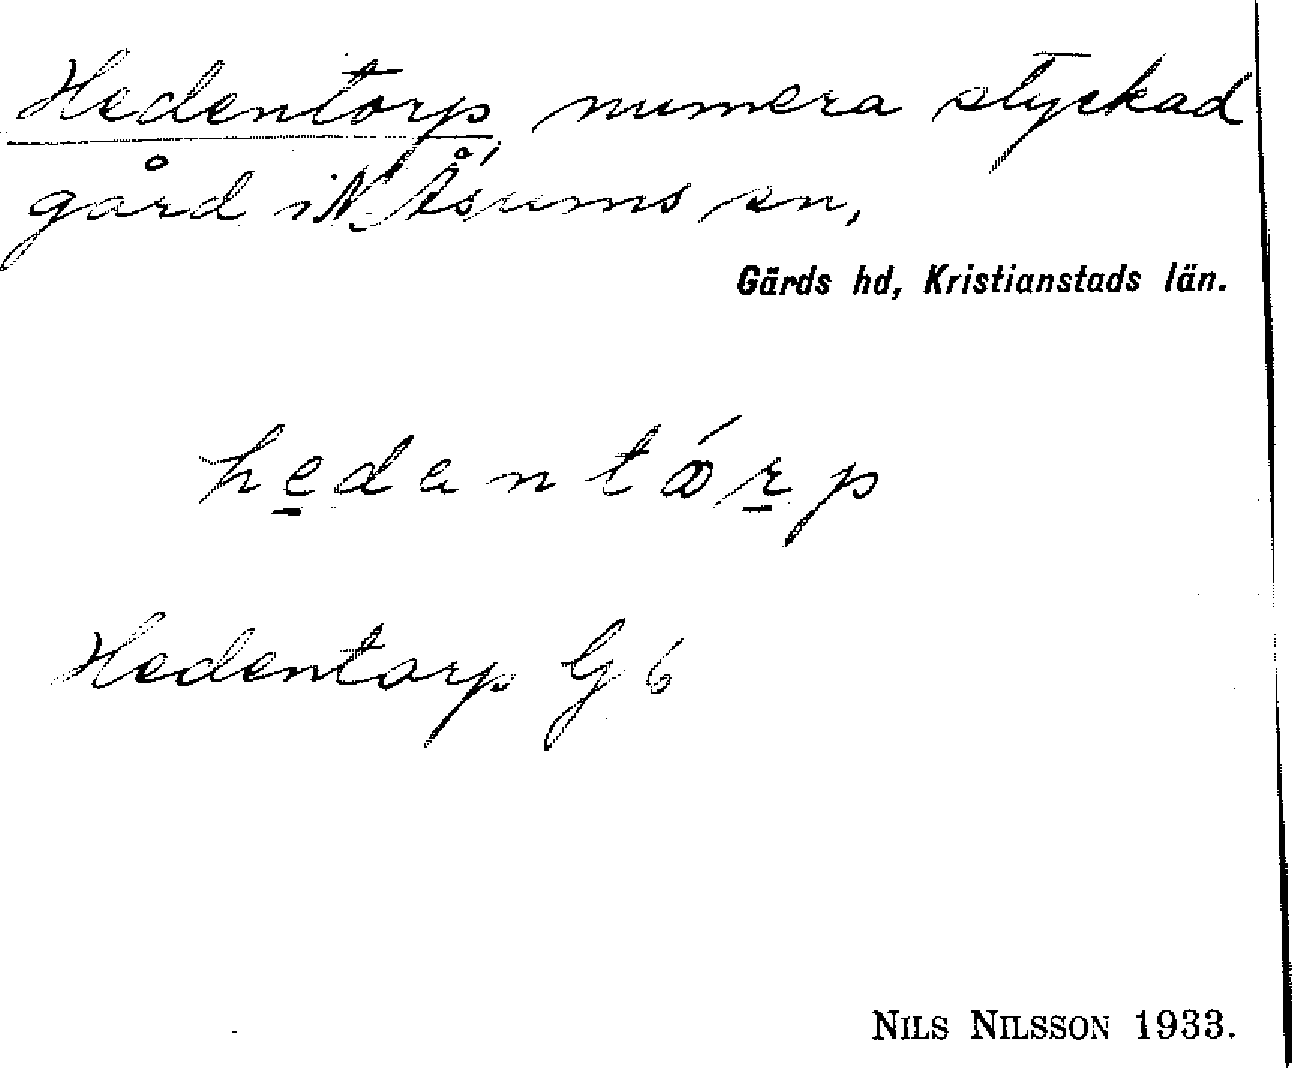 Hedentorp, numera styckad
gård i N. Åsums sn,
Gärds hd, Kristianstads län.
hedantórp
Hedentorp G 6
NILS NILSSON 1933.